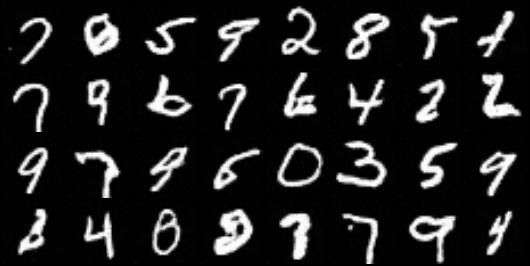 7 0 5 9 2 8 5 1
7 9 6 7 6 4 2 2
9 7 9 6 0 3 5 9
4 0 8 7 7 9 4